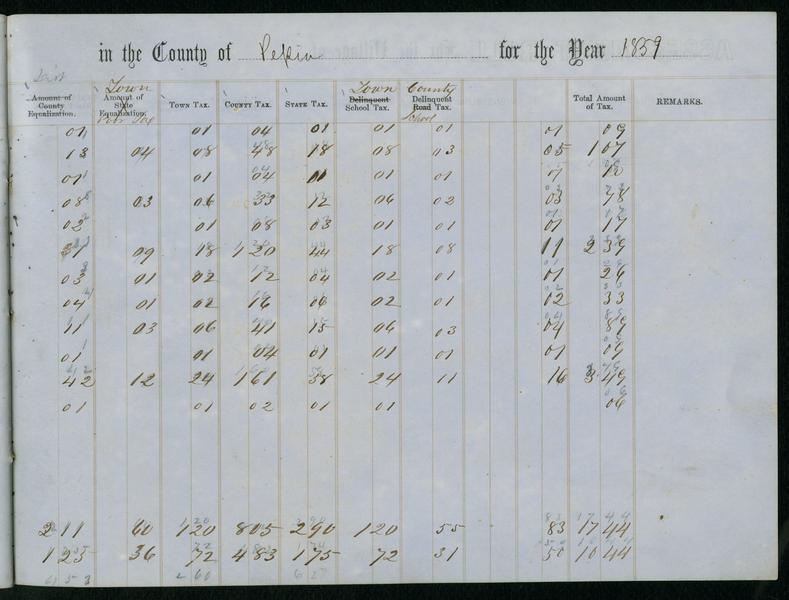 in the County of Pepin for the Year 1859
Town Town County
Amount of County Equalization. Amount of State Equalization. Town Tax. County Tax. State Tax. Delinquent School Tax. Delinquent Road Tax. Total Amount of Tax. REMARKS.
Poor Tax School
01 01 04 01 01 01 01 09
13 04 08 48 18 08 03 05 1 07
01 01 04 01 01 01 01 10
08 03 06 33 12 06 02 03 78
02 01 08 03 01 01 01 17
31 09 18 1 20 44 18 08 11 2 39
03 01 02 12 04 02 01 01 26
04 01 02 16 06 02 01 02 33
11 03 06 41 15 06 03 04 89
01 01 04 01 01 01 01 09
42 12 24 1 61 58 24 11 16 3 49
01 01 02 01 01 06
2 11 60 1 20 8 05 2 90 1 20 55 83 17 44
1 25 36 72 4 83 1 75 72 31 50 10 44